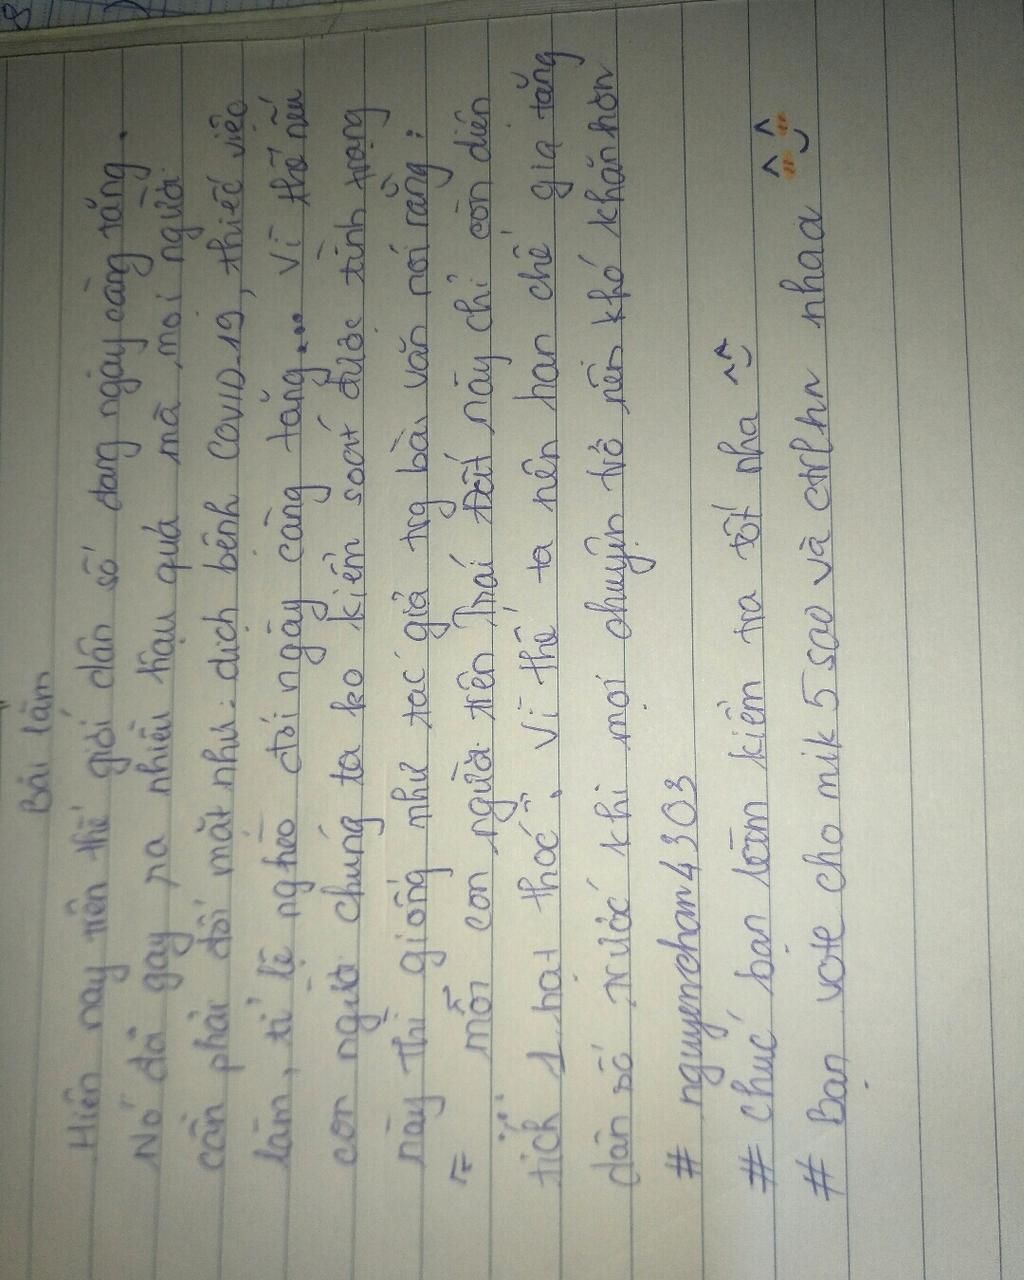 Bài làm
Hiện nay trên thế giới dân số đang ngày càng tăng.
Nó đã gây ra nhiều hậu quả mà mọi người
cần phải đối mặt như: dịch bệnh COVID-19, thiếc việc
làm, tỉ lệ nghèo đói ngày càng tăng... Vì thế nếu
con người chúng ta ko kiểm soát được tình trạng
này thì giống như tác giả trg bài văn nói rằng:
" mỗi con người trên Trái Đất này chỉ còn diện
tích 1 hạt thóc". Vì thế ta nên hạn chế gia tăng
dân số trước khi mọi chuyện trở nên khó khăn hơn
# nguyencham4303
# chúc bạn làm kiểm tra tốt nha ^^
# Bạn vote cho mik 5 sao và ctrlhn nhaa ^^